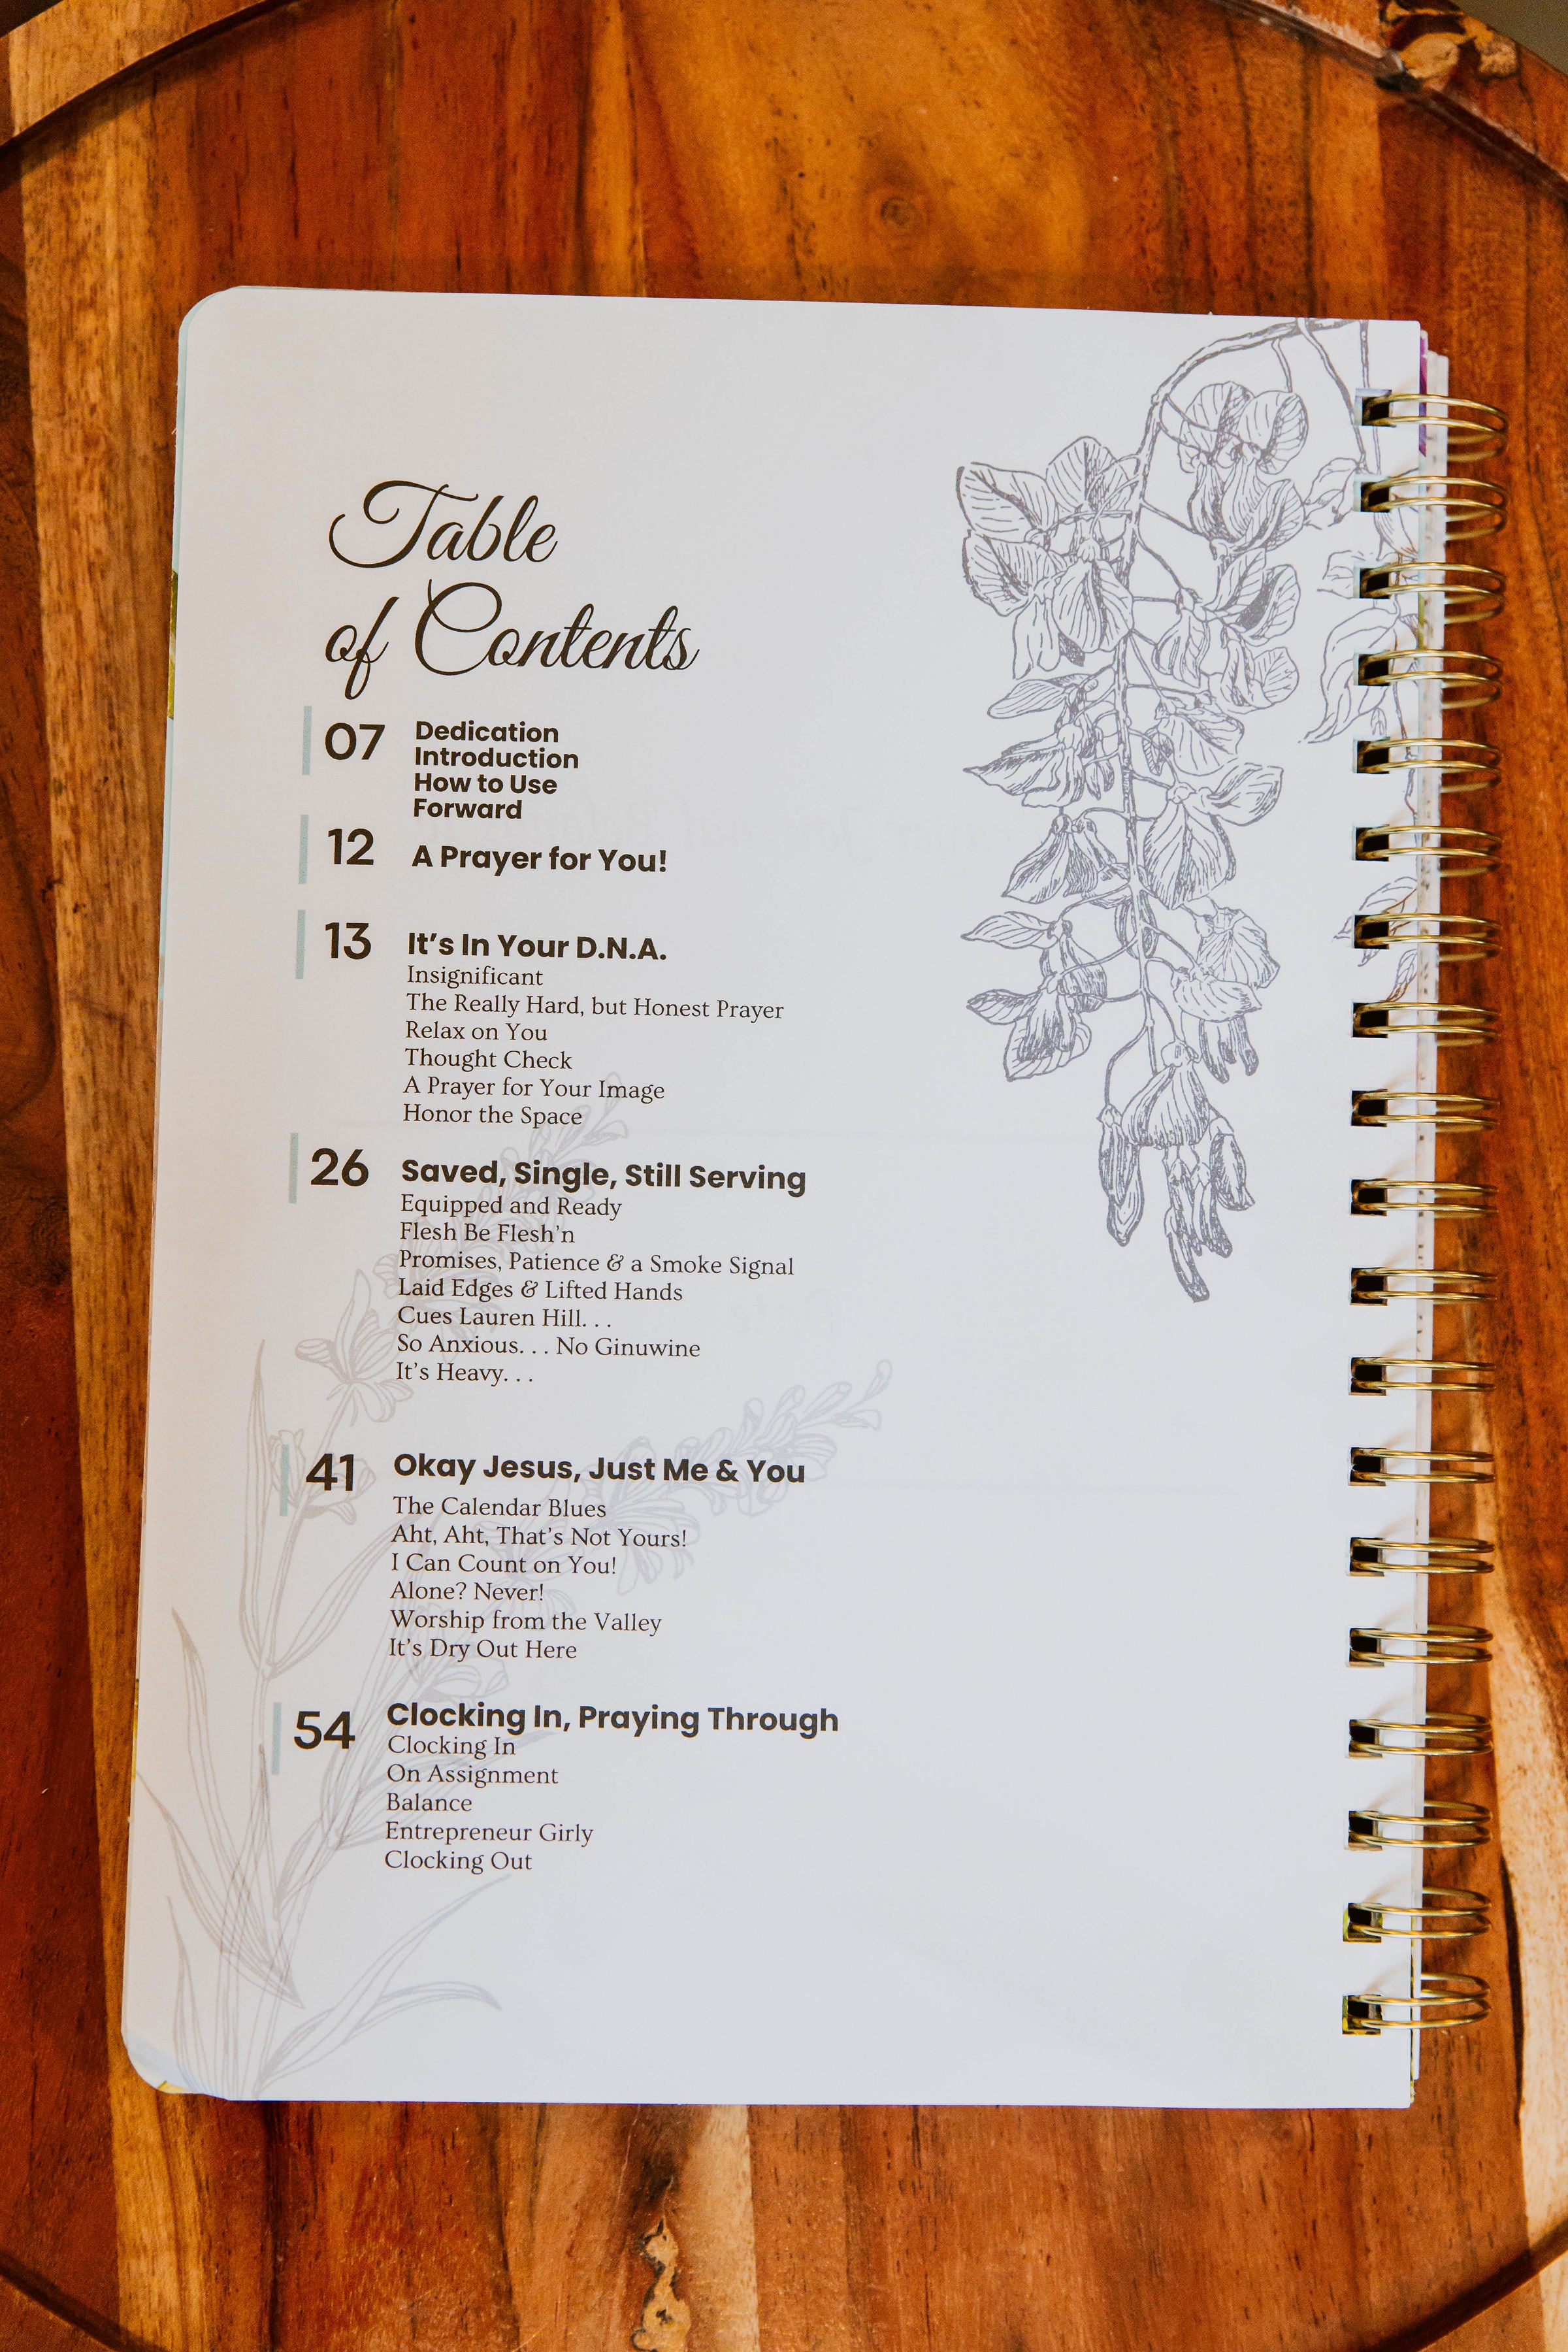 Table
of Contents
07 Dedication
Introduction
How to Use
Forward
12 A Prayer for You!
13 It's In Your D.N.A.
Insignificant
The Really Hard, but Honest Prayer
Relax on You
Thought Check
A Prayer for Your Image
Honor the Space
26 Saved, Single, Still Serving
Equipped and Ready
Flesh Be Flesh'n
Promises, Patience & a Smoke Signal
Laid Edges & Lifted Hands
Cues Lauren Hill. . .
So Anxious. . . No Ginuwine
It's Heavy. . .
41 Okay Jesus, Just Me & You
The Calendar Blues
Aht, Aht, That's Not Yours!
I Can Count on You!
Alone? Never!
Worship from the Valley
It's Dry Out Here
54 Clocking In, Praying Through
Clocking In
On Assignment
Balance
Entrepreneur Girly
Clocking Out